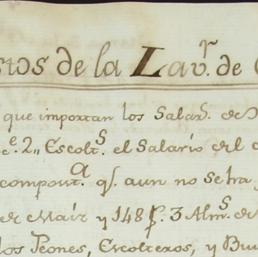 stos de la Lav.r de
que importan los Salar.s de
e 2,, Escolt.s el Salario del
compost.a q.e aun no se ha
de Maíz y 148 p.s 3 Alm.s de
los Peones, Escolteros, y